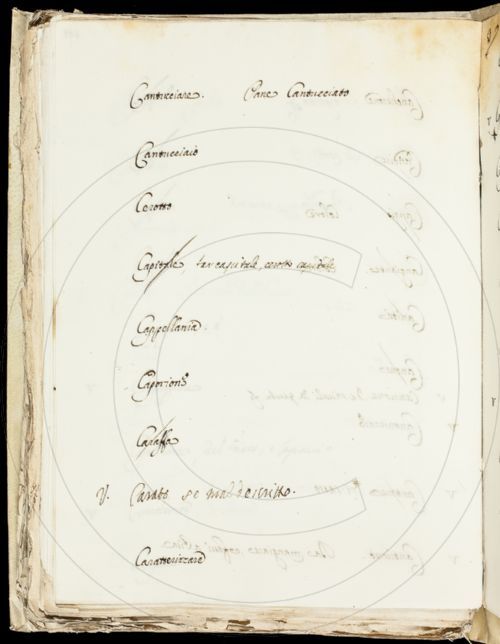 Cantucciare. Pane Cantucciato
Cantucciaio
Cerotto
Capitale, far capitale, cerotto capitale
Cappellania.
Caporione
Caraffa
V. Carato se mal descritto.
Caratterizzare